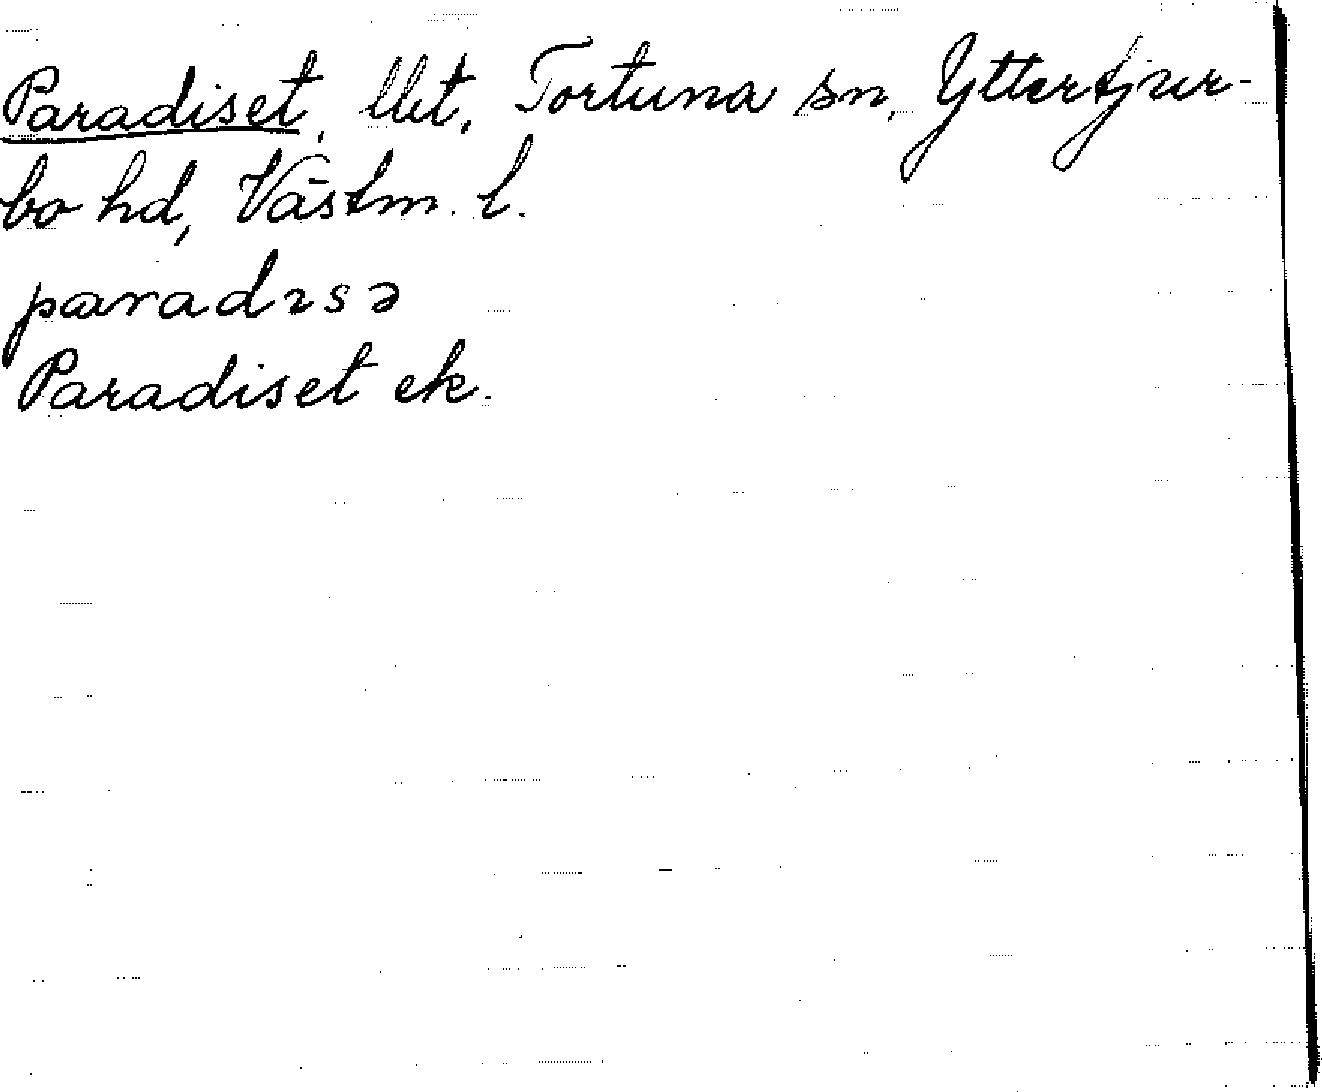 Paradiset, llht, Tortuna sn, Yttertjur-
bo hd, Västm. l.
paradɩsə
Paradiset ek.